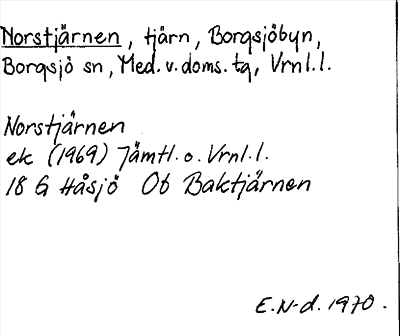 Norstjärnen, tjärn, Borgsjöbyn,
Borgsjö sn, Med. v. doms. tg, Vrnl.l.
Norstjärnen
ek (1969) Jämtl. o. Vrnl.l.
18 G Håsjö Ob Baktjärnen
E.N-d. 1970.